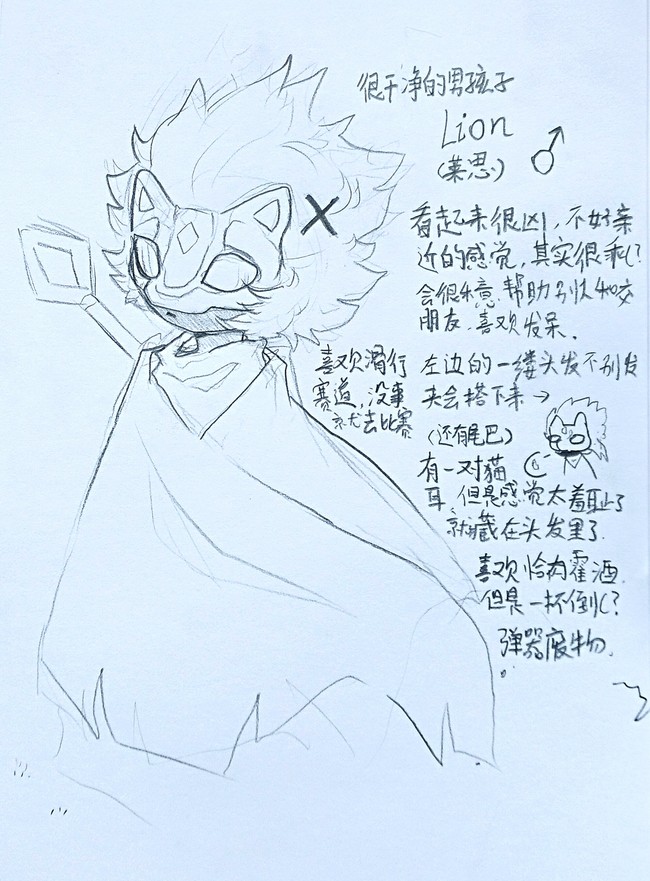 很干净的男孩子
Lion
(莱恩)
看起来很凶,不好亲
近的感觉,其实很乖(?
会很乐意帮助别人和交
朋友,喜欢发呆.
喜欢滑行
赛道,没事
就去比赛
左边的一缕头发不别发
夹会搭下来→
(还有尾巴)
有一对猫
耳,但是感觉太羞耻了
就藏在头发里了.
喜欢恰肉霍酒.
但是一杯倒(?
弹器废物.